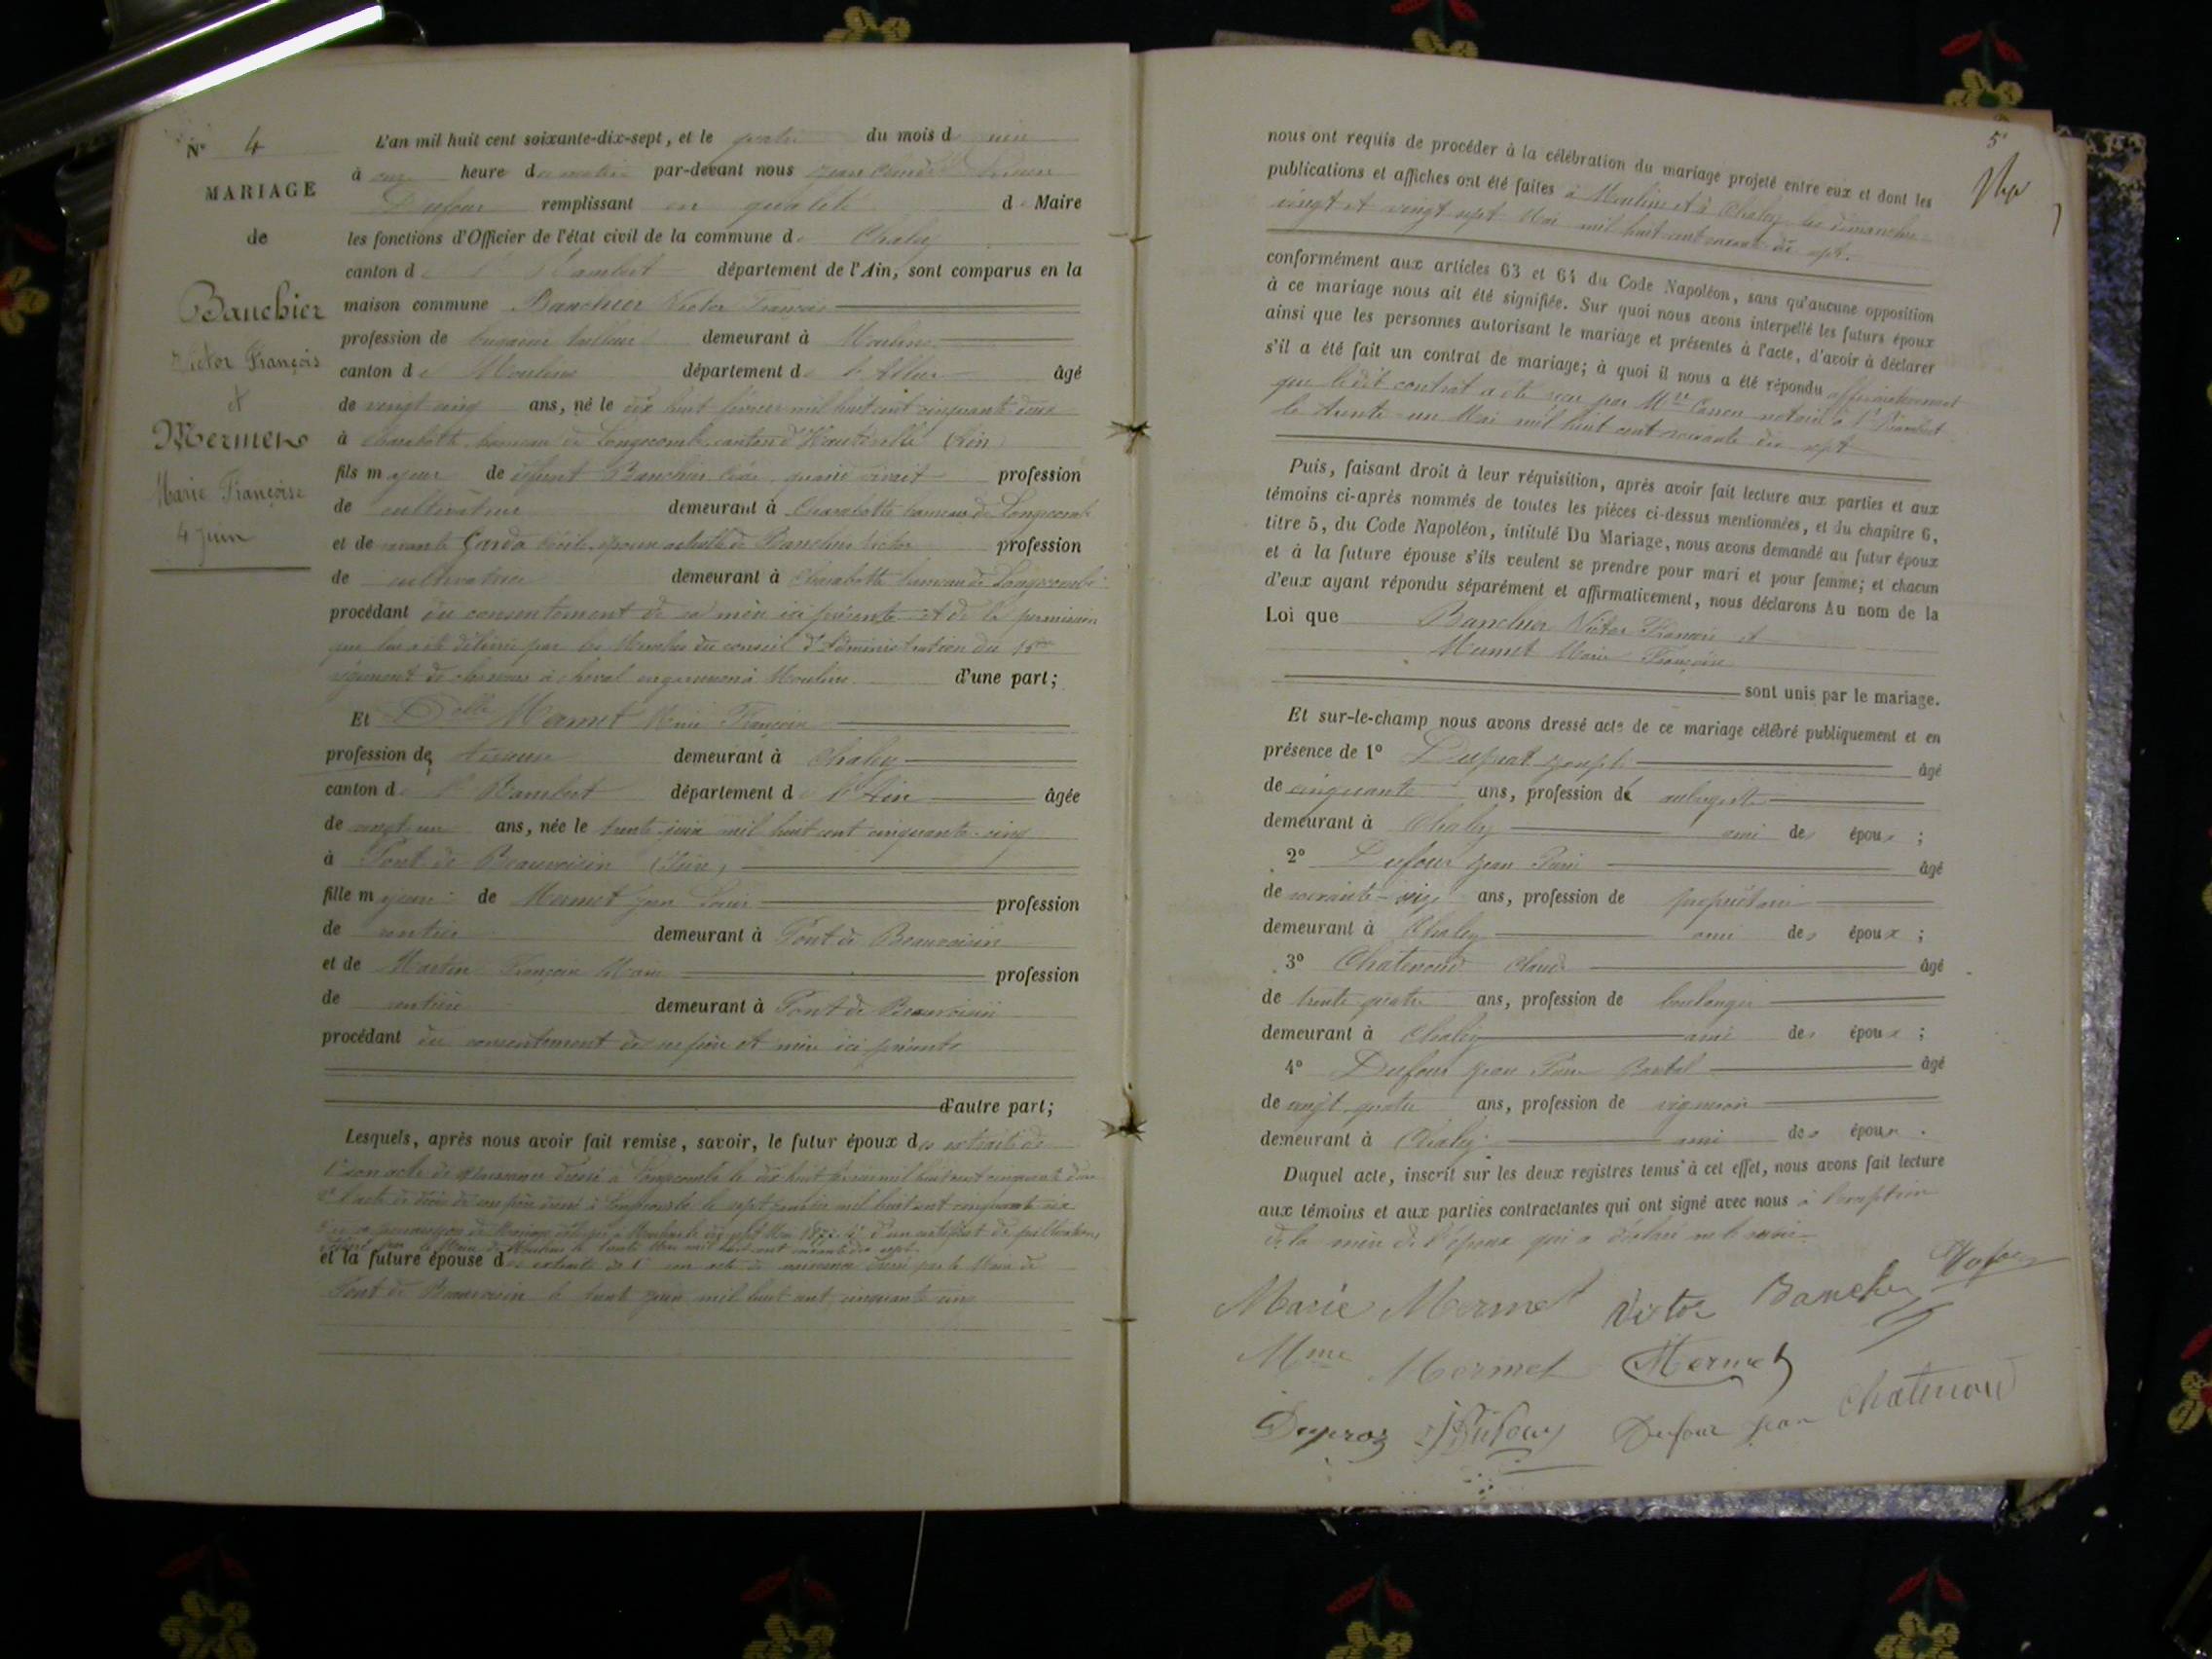 N° 4
MARIAGE
de
Banchier
Victor François
et
Mermet
Marie Françoise
4 Juin
L'an mil huit cent soixante-dix-sept, et le quatre du mois de juin
à onze heure du matin par-devant nous Jean
Dufour remplissant en qualité de Maire
les fonctions d'Officier de l'état civil de la commune de Chaley
canton de St Rambert département de l'Ain, sont comparus en la
maison commune Banchier Victor François
profession de brigadier tailleur demeurant à Moulins
canton de Moulins département de l'Allier âgé
de vingt cinq ans, né le dix huit février mil huit cent cinquante deux
à Charabotte hameau de Longecombe canton d'Hauteville (Ain)
fils majeur de défunt Banchier quand vivait profession
de cultivateur demeurant à Charabotte hameau de Longecombe
et de vivante Garda épouse actuelle de Banchier Victor profession
de cultivatrice demeurant à Charabotte hameau de Longecombe
procédant du consentement de sa mère ici présente et de la permission
qui lui a été délivrée par les Membres du conseil d'Administration du 15me
régiment de chasseurs à cheval en garnison à Moulins d'une part;
Et Dolle Mermet Marie Françoise
profession de demeurant à Chaley
canton de St Rambert département de l'Ain âgée
de vingt un ans, née le trente juin mil huit cent cinquante-cinq
à Pont de Beauvoisin
fille majeure de Mermet Jean Louis profession
de rentier demeurant à Pont de Beauvoisin
et de Martin Françoise Marie profession
de rentière demeurant à Pont de Beauvoisin
procédant du consentement de ses père et mère ici présents
d'autre part;
Lesquels, après nous avoir fait remise, savoir, le futur époux des extraits de
1° son acte de naissance dressé à Longecombe le dix huit février mil huit cent cinquante deux
2° l'acte de décès de son père dressé à Longecombe le sept mil huit cent cinquante six
d'un certificat de publications
délivré par le Maire de Moulins le trente Mai mil huit cent soixante dix sept.
et la future épouse des extraits de 1° son acte de naissance dressé par le Maire de
Pont de Beauvoisin le trente juin mil huit cent cinquante cinq
5
nous ont requis de procéder à la célébration du mariage projeté entre eux et dont les
publications et affiches ont été faites à Moulins et à Chaley les dimanches
vingt et vingt sept Mai mil huit cent soixante dix sept.
conformément aux articles 63 et 64 du Code Napoléon, sans qu'aucune opposition
à ce mariage nous ait été signifiée. Sur quoi nous avons interpellé les futurs époux
ainsi que les personnes autorisant le mariage et présentes à l'acte, d'avoir à déclarer
s'il a été fait un contrat de mariage; à quoi il nous a été répondu affirmativement
que ledit contrat a été reçu par Me notaire à St Rambert
le trente un Mai mil huit cent soixante dix sept
Puis, faisant droit à leur réquisition, après avoir fait lecture aux parties et aux
témoins ci-après nommés de toutes les pièces ci-dessus mentionnées, et du chapitre 6,
titre 5, du Code Napoléon, intitulé Du Mariage, nous avons demandé au futur époux
et à la future épouse s'ils veulent se prendre pour mari et pour femme; et chacun
d'eux ayant répondu séparément et affirmativement, nous déclarons Au nom de la
Loi que Banchier Victor François et
Mermet Marie Françoise
sont unis par le mariage.
Et sur-le-champ nous avons dressé acte de ce mariage célébré publiquement et en
présence de 1° Duprat Joseph âgé
de cinquante ans, profession de aubergiste
demeurant à Chaley ami des époux ;
2° Dufour Jean âgé
de soixante-six ans, profession de propriétaire
demeurant à Chaley ami des époux ;
3° Chatenoud Claude âgé
de trente quatre ans, profession de boulanger
demeurant à Chaley ami des époux ;
4° Dufour Jean Pierre âgé
de vingt quatre ans, profession de vigneron
demeurant à Chaley ami des époux .
Duquel acte, inscrit sur les deux registres tenus à cet effet, nous avons fait lecture
aux témoins et aux parties contractantes qui ont signé avec nous à l'exception
de la mère de l'époux qui a déclaré ne le savoir
Marie Mermet Victor Banchier
Mme Mermet Mermet
Dufour Dufour jean Chatenoud